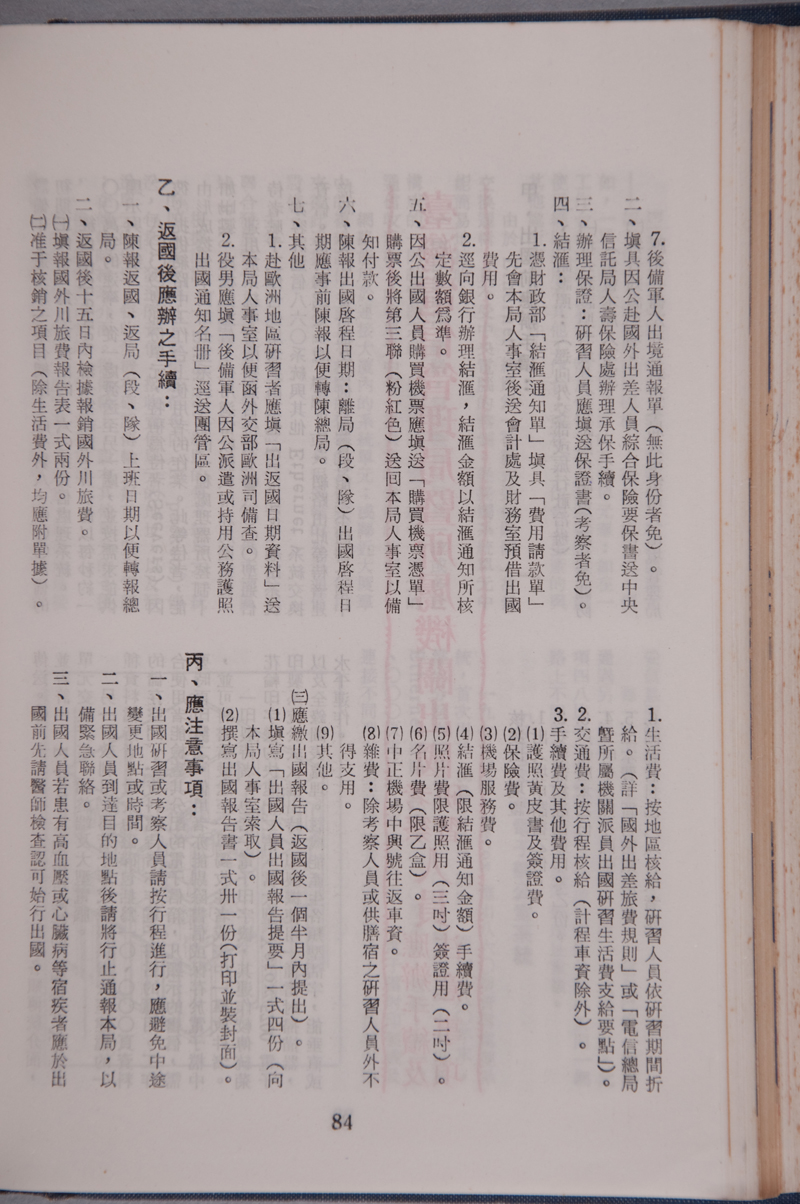 7.後備軍人出境通報單（無此身份者免）。
二、填具因公赴國外出差人員綜合保險要保書送中央
信託局人壽保險處辦理承保手續。
三、辦理保證：研習人員應填送保證書（考察者免）。
四、結滙：
1.憑財政部「結滙通知單」填具「費用請款單」
先會本局人事室後送會計處及財務室預借出國
費用。
2.逕向銀行辦理結滙，結滙金額以結滙通知所核
定數額爲準。
五、因公出國人員購買機票應填送「購買機票憑單」
購票後將第三聯（粉紅色）送回本局人事室以備
知付款。
六、陳報出國啓程日期：離局（段、隊）出國啓程日
期應事前陳報以便轉陳總局。
七、其他
1.赴歐洲地區研習者應塡「出返國日期資料」送
本局人事室以便函外交部歐洲司備查。
2.役男應塡「後備軍人因公派遣或持用公務護照
出國通知名册」逕送團管區。
乙、返國後應辦之手續：
一、陳報返國、返局（段、隊）上班日期以便轉報總
局。
二、返國後十五日內檢據報銷國外川旅費。
㈠塡報國外川旅費報告表一式兩份。
㈡准于核銷之項目（除生活費外，均應附單據）。
1.生活費：按地區核給，研習人員依研習期間折
給。（詳「國外出差旅費規則」或「電信總局
暨所屬機關派員出國研習生活費支給要點」）。
2.交通費：按行程核給（計程車資除外）。
3.手續費及其他費用。
(1)護照黃皮書及簽證費。
(2)保險費。
(3)機場服務費。
(4)結滙（限結滙通知金額）手續費。
(5)照片費限護照用（三吋）簽證用（二吋）。
(6)名片費（限乙盒）。
(7)中正機場中興號往返車資。
(8)雜費：除考察人員或供膳宿之研習人員外不
得支用。
(9)其他。
㈢應繳出國報告（返國後一個半月內提出）。
(1)塡寫「出國人員出國報告提要」一式四份（向
本局人事室索取）。
(2)撰寫出國報告書一式卅一份（打印並裝封面）。
丙、應注意事項：
一、出國研習或考察人員請按行程進行，應避免中途
變更地點或時間。
二、出國人員到達目的地點後請將行止通報本局，以
備緊急聯絡。
三、出國人員若患有高血壓或心臟病等宿疾者應於出
國前先請醫師檢查認可始行出國。
84